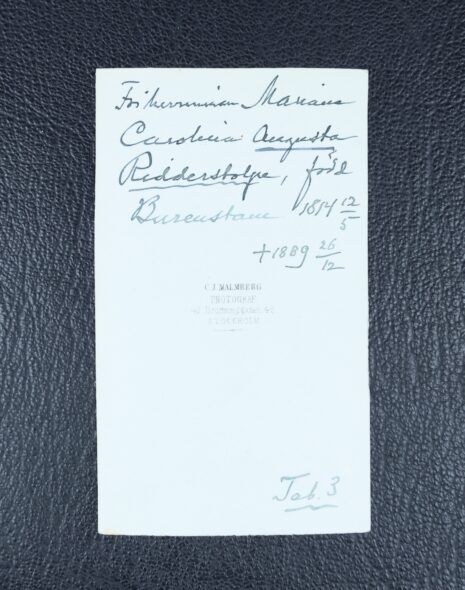 Friherrinnan Mariana
Carolina Augusta
Ridderstolpe, född
Burenstam 1814 12/5
+1889 26/12
C J MALMBERG
FOTOGRAF
STOCKHOLM
Tab. 3